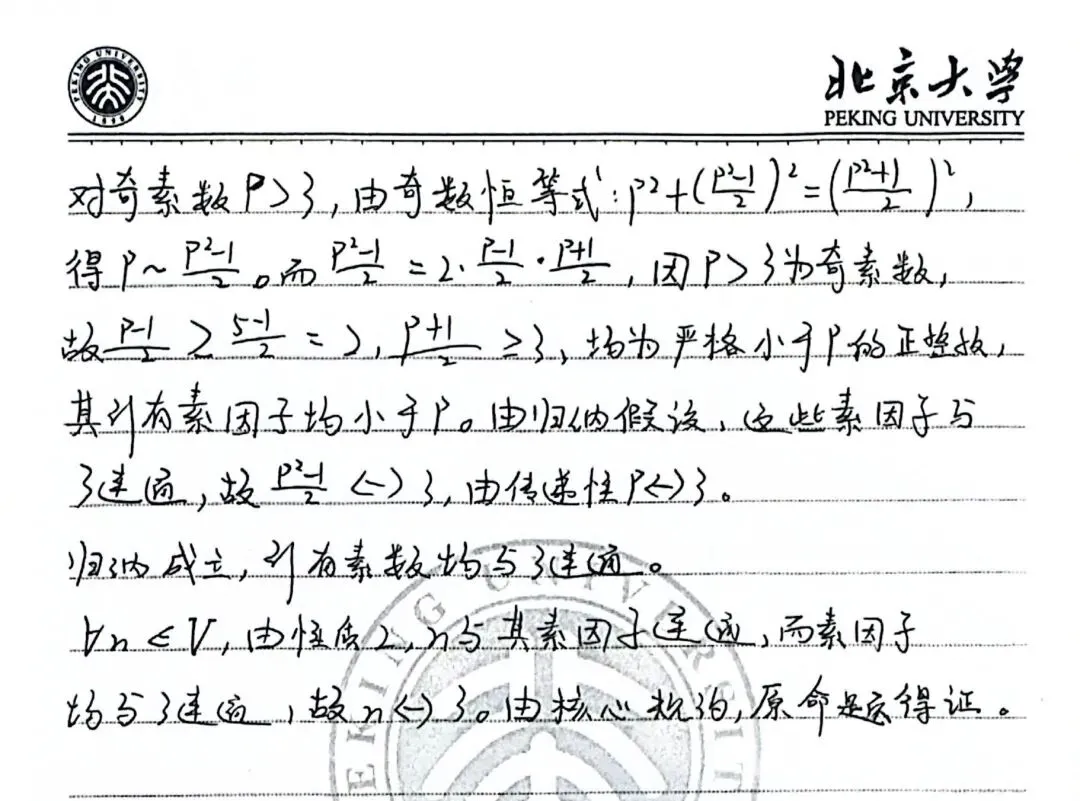 PEKING UNIVERSITY
1898
北京大学
PEKING UNIVERSITY
对奇素数P>3,由奇数恒等式:P²+(\frac{P²-1}{2})²=(\frac{P²+1}{2})²,
得P~\frac{P²-1}{2}。而\frac{P²-1}{2}=2·\frac{P-1}{2}·\frac{P+1}{2},因P>3为奇素数,
故\frac{P-1}{2}≥\frac{5-1}{2}=2,\frac{P+1}{2}≥3,均为严格小于P的正整数,
其所有素因子均小于P。由归纳假设,这些素因子与
3连通,故\frac{P²-1}{2}<->3,由传递性P<->3。
归纳成立,所有素数均与3连通。
∀n∈V,由性质2,n与其素因子连通,而素因子
均与3连通,故n<->3。由核心规约,原命题得证。
PEKING UNIVERSIT